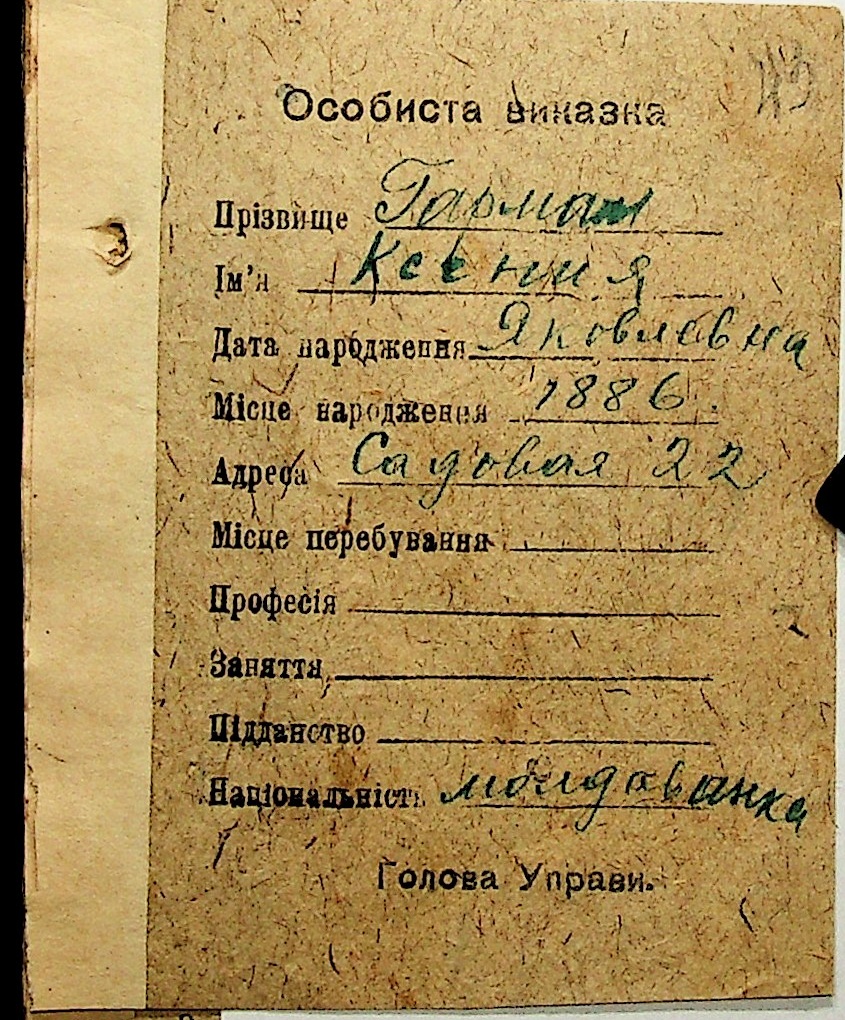 Особиста виказка
Прізвище Гарман
Ім'я Ксения
Дата народження Яковлевна
Місце народження 1886.
Адреса Садовая 22
Місце перебування
Професія
Заняття
Підданство
Національність молдованка
Голова Управи.